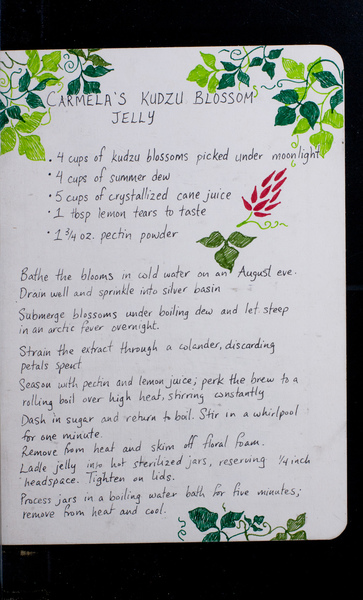 CARMELA'S KUDZU BLOSSOM
JELLY
• 4 cups of kudzu blossoms picked under moonlight
• 4 cups of summer dew
• 5 cups of crystallized cane juice
• 1 tbsp lemon tears to taste
• 1 3/4 oz. pectin powder
Bathe the blooms in cold water on an August eve.
Drain well and sprinkle into silver basin
Submerge blossoms under boiling dew and let steep
in an arctic fever overnight.
Strain the extract through a colander, discarding
petals spent
Season with pectin and lemon juice; perk the brew to a
rolling boil over high heat, stirring constantly
Dash in sugar and return to boil. Stir in a whirlpool
for one minute.
Remove from heat and skim off floral foam.
Ladle jelly into hot sterilized jars, reserving 1/4 inch
headspace. Tighten on lids.
Process jars in a boiling water bath for five minutes;
remove from heat and cool.